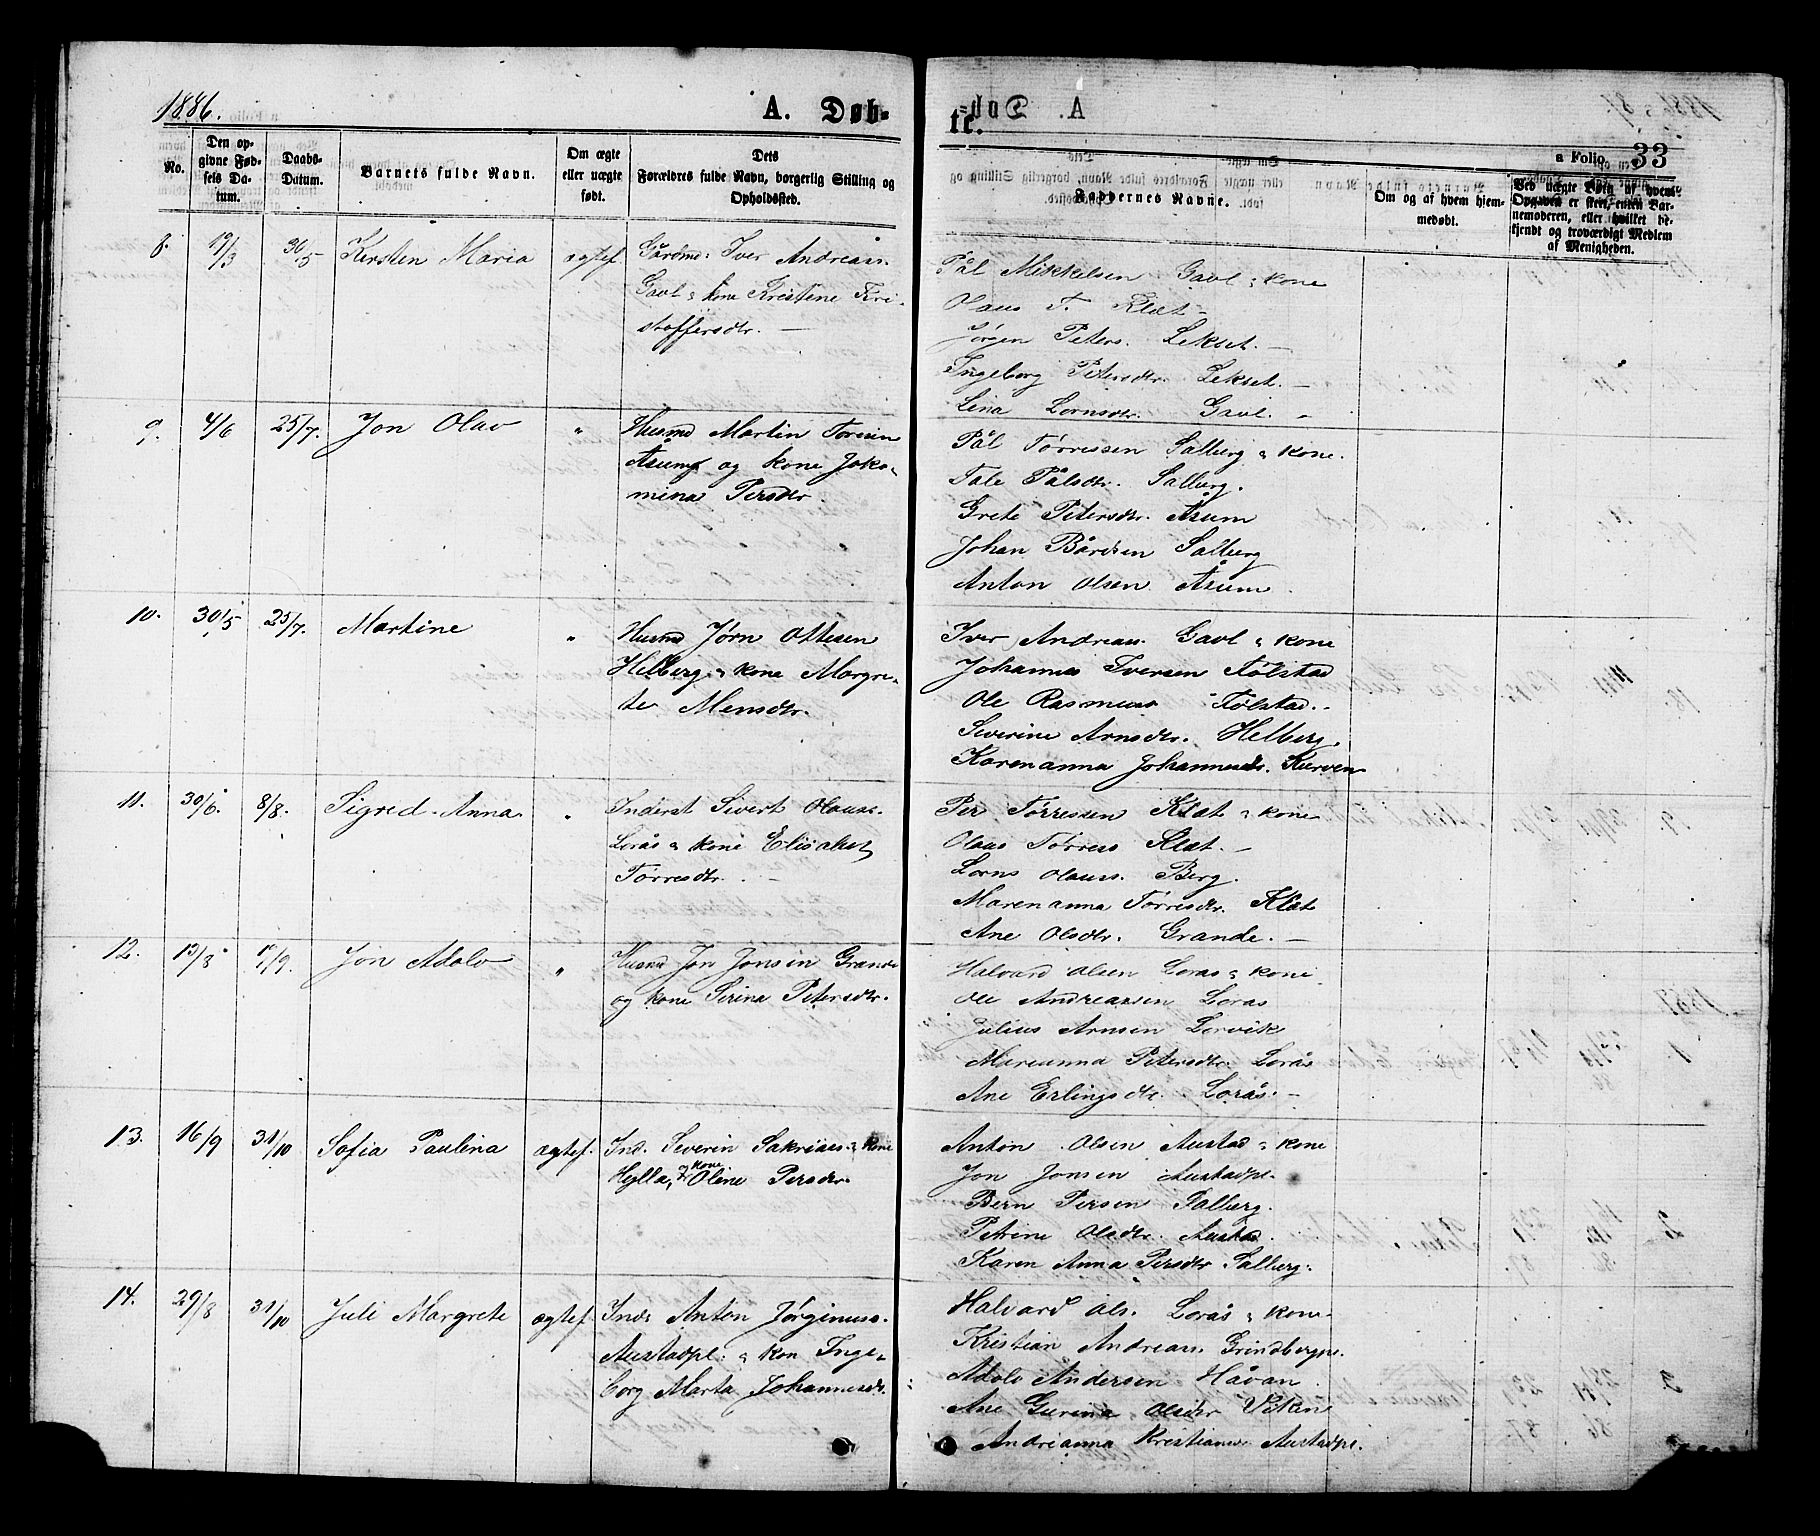 1886.
A. Døb-
te.
a Folio 33
No.
Den op-
givne Fød-
sels Da-
tum.
Daabs-
Datum.
Barnets fulde Navn.
Om ægte
eller uægte
født.
Dets
Forældres fulde Navn, borgerlig Stilling og
Opholdssted.
Faddernes Navne.
Om og af hvem hjem-
medøbt.
Ved uægte Børn af hvem
Opgaven er skeet, enten Bar-
nemoderen, eller hvilket be-
kjendt og troværdigt Medlem
af Menigheden.
8. 19/3 30/5 Kirsten Maria ægtef.
Gårdmd: Iver Andreass.
Gavl & kone Kristene Kri-
stoffersdtr. —
Pål Mikkelsen Gavl & kone
Olaus T. Klæt —
Jørgen Peters. Lekset. —
Ingeborg Petersdtr. Lekset. —
Lina Lornsdtr. Gavl. —
9. 4/6 25/7. Jon Olav "
Husmd Martin Toresen
Åsum og kone Joko-
mina Persdtr.
Pål Tørressen Salberg & kone.
Tale Pålsdtr. Salberg.
Grete Petersdtr. Åsum
Johan Bårdsen Salberg
Anton Olsen Åsum.
10. 30/5 25/7. Martine "
Husmd Jørn Ottesen
Helberg & kone Margre-
te Mensdtr.
Iver Andreass. Gavl & kone
Johannes Iversen Følstad
Ole Rasmuss Følstad.
Severine Arnsdtr. Helberg.
Karenanna Johannesdr. Kurven
11. 30/6. 8/8. Sigred Anna "
Inderst Sivert Olauss.
Lorås & kone Elisabet
Tørresdtr. —
Per Tørressen Klæt & kone
Olaus Tørress Klæt. —
Lorns Olauss. Berg.
Marenanna Tørresdtr. Klæt
Ane Olsdtr. Grande. —
12. 13/8 19/9. Jon Adolv "
Husmd Jon Jonsen Grande
og kone Serina Petersdtr.
Halvard Olsen Lorås & kone
Ole Andreassen Lorås
Julius Arnsen Lorvik
Marianna Petersdtr. Lorås
Ane Erlingsdtr. Lorås. —
13. 16/9 31/10 Sofia Paulina ægtef.
Ind. Severin Sakrias. & kone
& kone
Hylla, Oline Persdtr.
Anton Olsen Austad & kone
Jon Jonsen Austadpl.
Bern Persen Salberg.
Petrine Olsdtr. Austad.
Karen Anna Persdtr Salberg.
14. 29/8 31/10 Juli Margrete ægtef.
Ind. Anton Jørginuss.
Austadpl. & kon Inge-
borg Marta Johannesdr.
Halvard Ols. Lorås & kone
Kristian Andreass. Grindbergpl.
Adolv Andersen Håvan.
Ane Gurina Olsdtr Viken
Andrianna Kristiansdr. Austadpl.